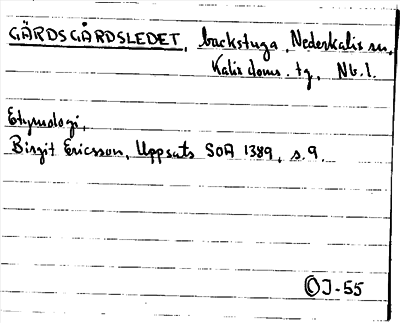 GÄRDSGÅRDSLEDET, backstuga, Nederkalix sn,
Kalix doms. tg, Nb. l.
Etymologi,
Birgit Ericsson, Uppsats SOA 1389, s. 9.
OJ-55